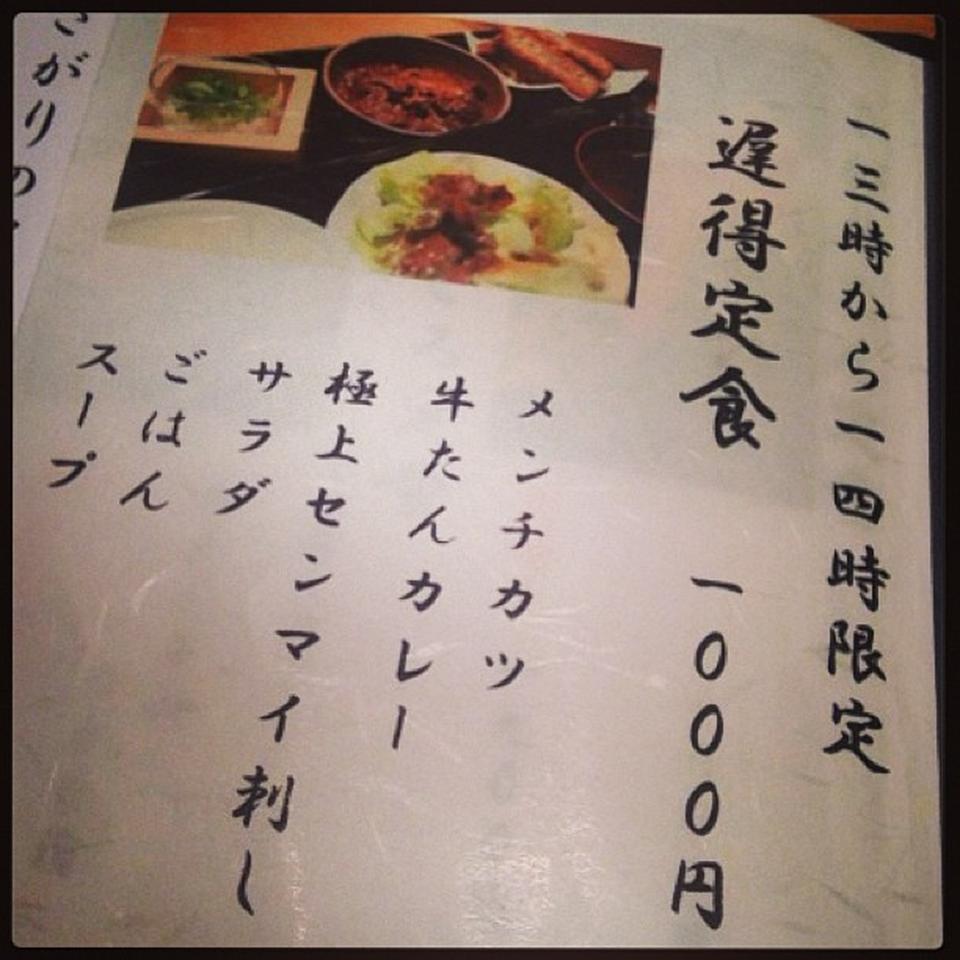 一三時から一四時限定
遅得定食 一000円
メンチカツ
牛たんカレー
極上センマイ刺し
サラダ
ごはん
スープ
がりの